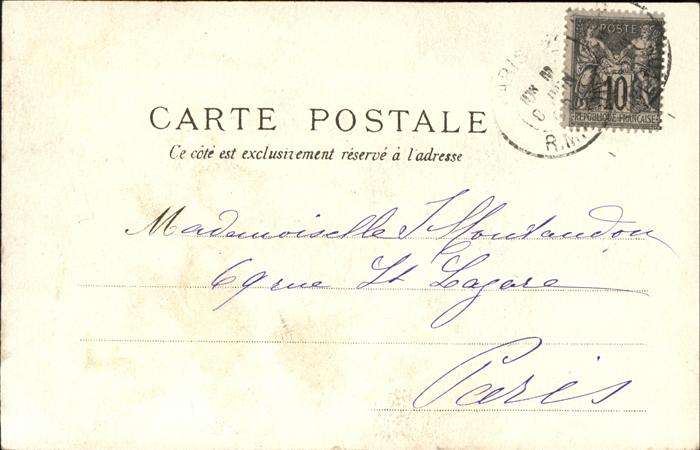 POSTE
10
REPUBLIQUE FRANCAISE
PARIS
CARTE POSTALE
Ce côté est exclusivement réservé à l'adresse
Mademoiselle J Montandon
69 rue St Lazare
Paris